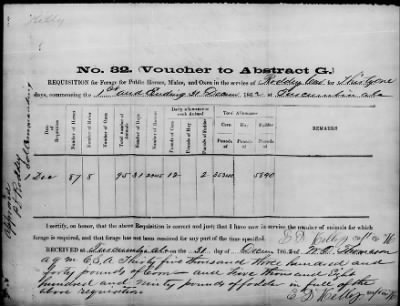 Kelly
No. 32. (Voucher to Abstract G.)
REQUISITION for Forage for Public Horses, Mules, and Oxen in the service of Roddey for Thirty one
days, commencing the 1st and Ending 31 Decem 1862, at Tuscumbia Ala
Date of Requisition
Number of Horses
Number of Mules
Number of Oxen
Total number of animals
Number of days
Daily allowance to each Animal
Total Allowance
Pounds of Corn
Pounds of Hay
Pounds of Fodder
Corn
Hay
Fodder
Pounds of
Pounds of
Pounds of
REMARKS
1 Dec 87 8 95 31 2945 12 2 35340 5890
Approved
P D Roddey
Col Commanding
I certify, on honor, that the above Requisition is correct and just; that I have now in service the number of animals for which
forage is required, and that forage has not been received for any part of the time specified.
RECEIVED at Tuscumbia Ala on the 31 of Decem 1862, of W. R. Thompson
a q m C.S.A. Thirty five thousand three hundred and
forty pounds of Corn and five thousand and Eight
hundred and ninety pounds of fodder in full of the
above requisition